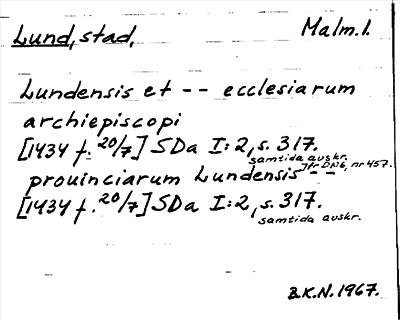 Lund, stad, Malm. l.
Lundensis et -- ecclesiarum
archiepiscopi
[1434 f. 20/7] SDa I:2, s. 317.
samtida avskr.
Jfr DN6, nr 457.
prouinciarum Lundensis --
[1434 f. 20/7] SDa I:2, s. 317.
samtida avskr.
B.K.N. 1967.